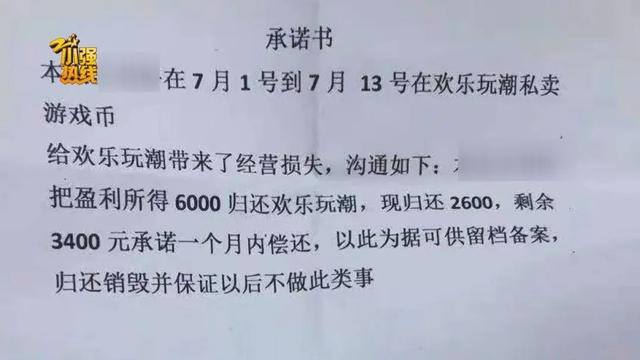 小强热线
承诺书
本 在7月1号到7月 13号在欢乐玩潮私卖
游戏币
给欢乐玩潮带来了经营损失，沟通如下：
把盈利所得6000归还欢乐玩潮，现归还2600，剩余
3400元承诺一个月内偿还，以此为据可供留档备案，
归还销毁并保证以后不做此类事